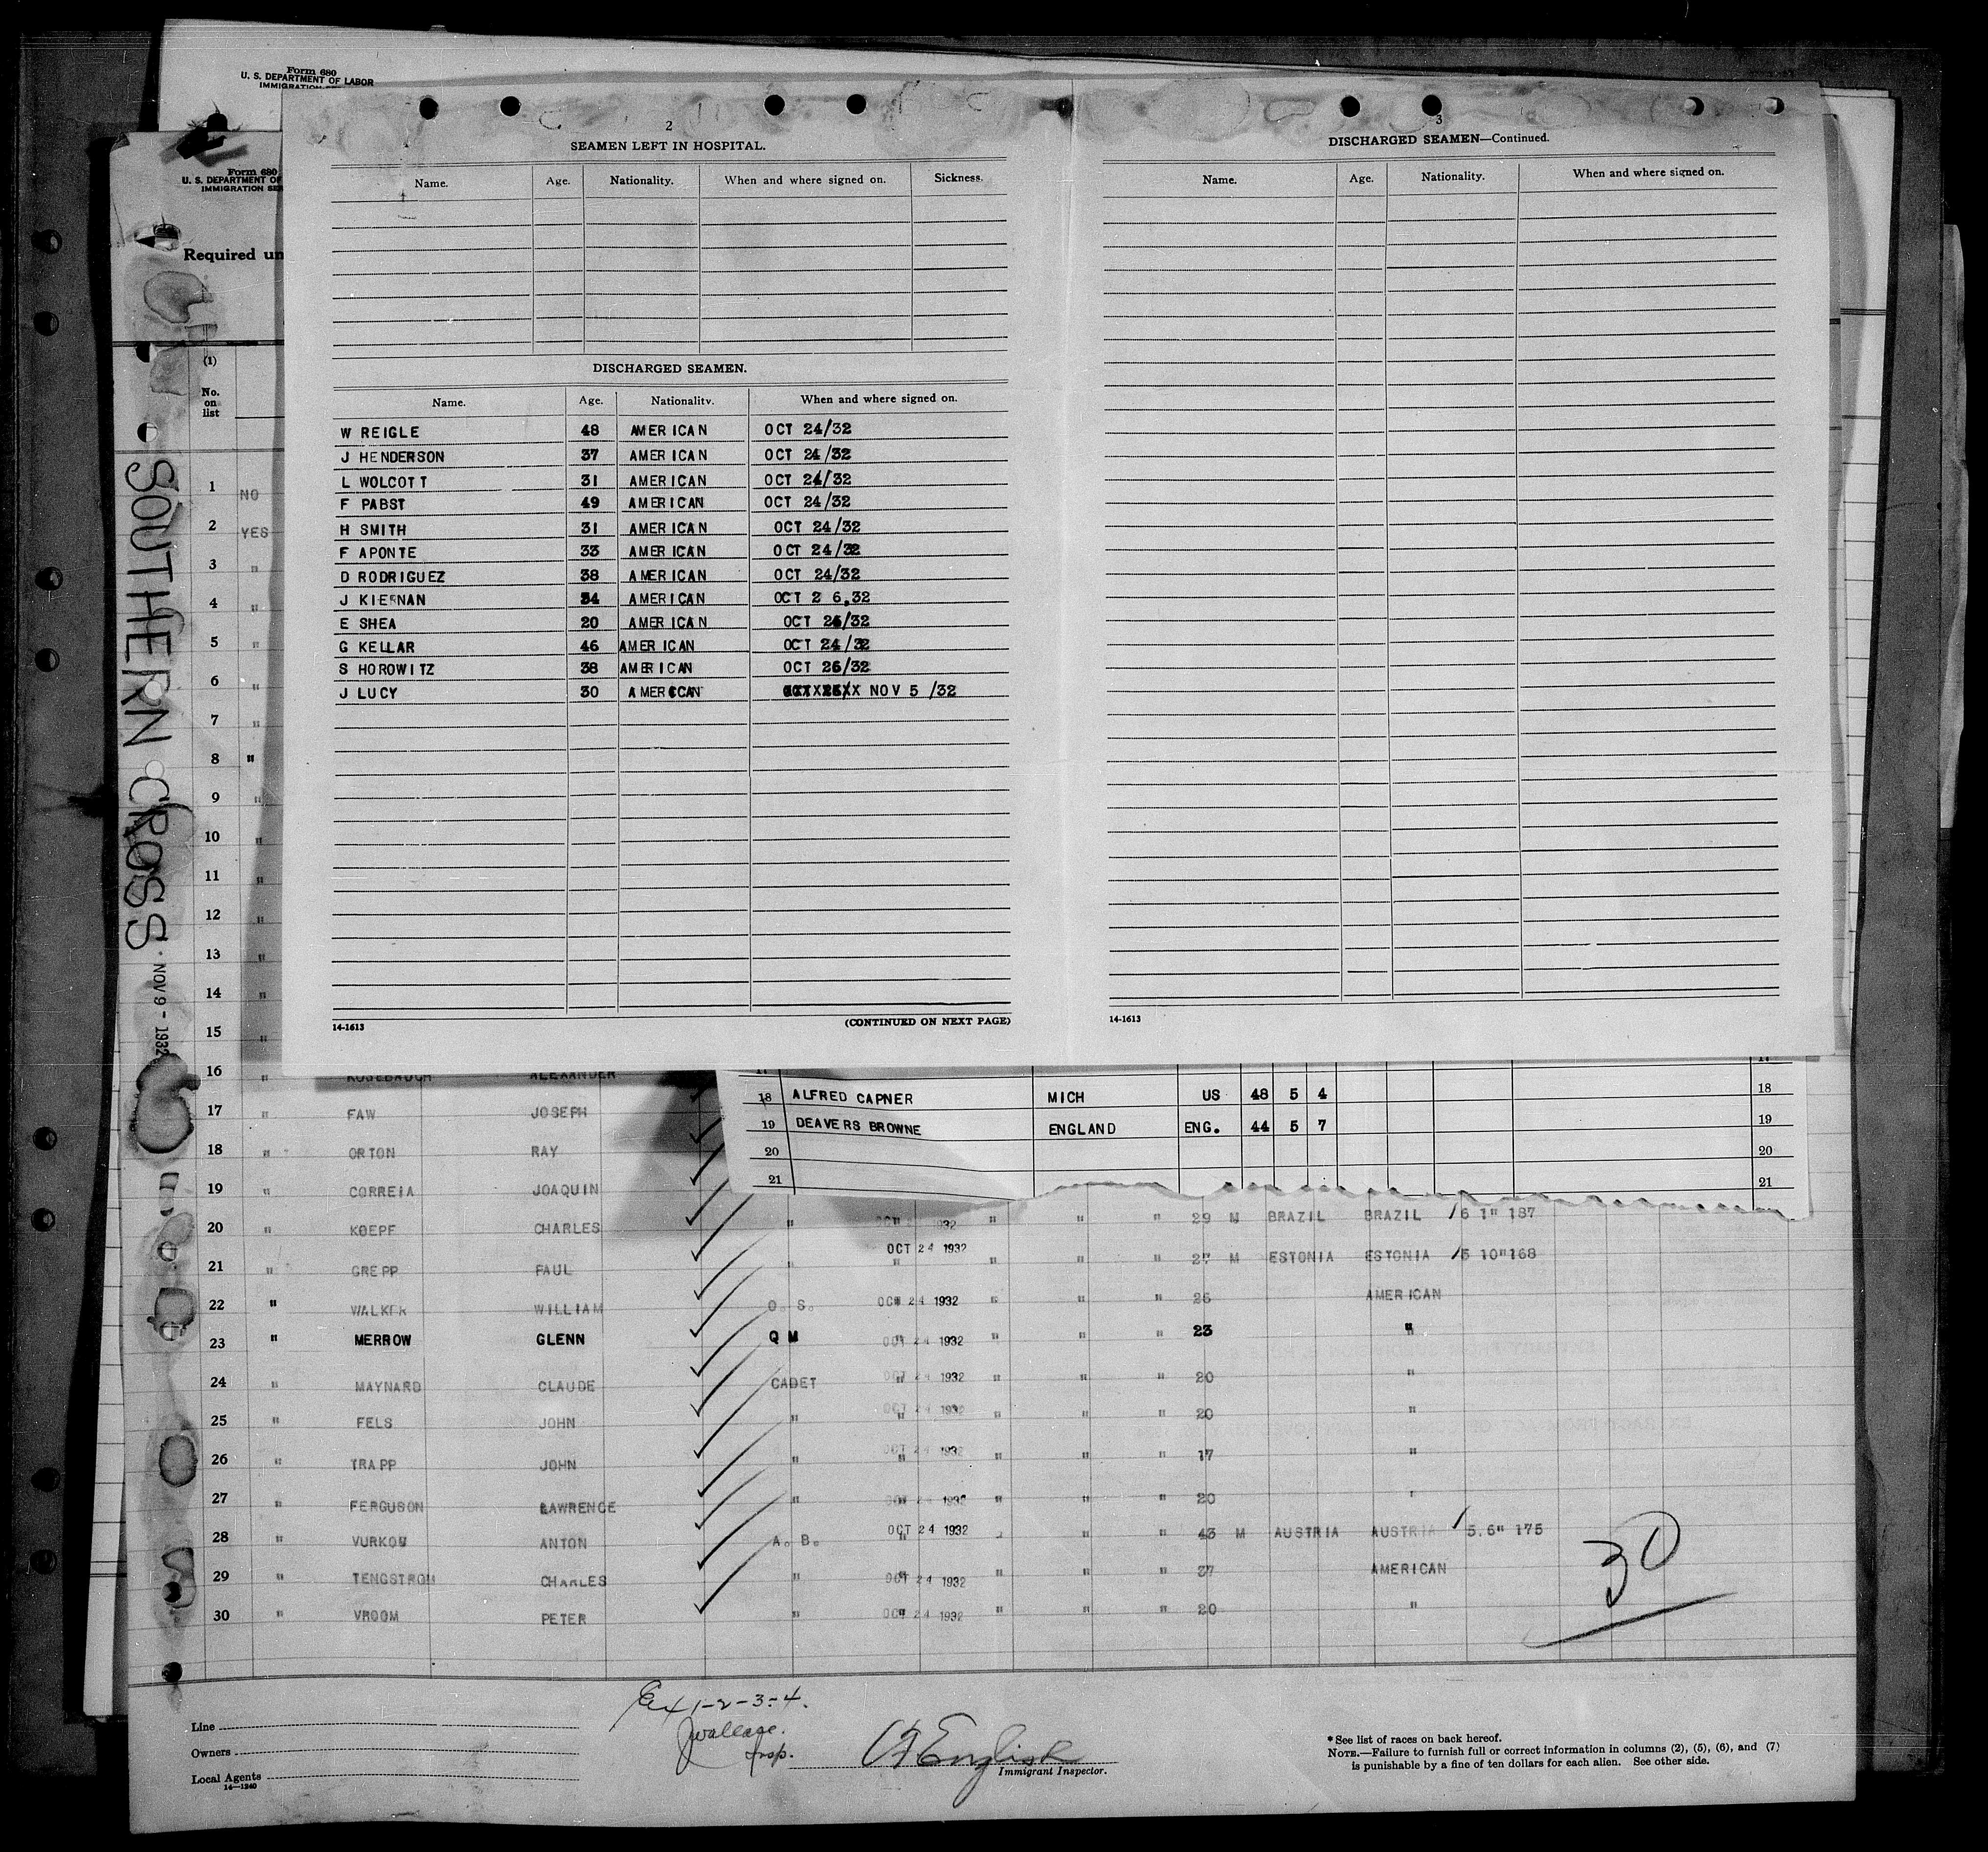 Form 680
U. S. DEPARTMENT OF LABOR
Form 680
U. S. DEPARTMENT OF
IMMIGRATION SER
Required un
(1)
No.
on
list
SOUTHERN CROSS
NOV 9 - 1932
2
SEAMEN LEFT IN HOSPITAL.
Name. Age. Nationality. When and where signed on. Sickness.
DISCHARGED SEAMEN.
Name. Age. Nationality. When and where signed on.
W REIGLE 48 AMERICAN OCT 24/32
J HENDERSON 37 AMERICAN OCT 24/32
L WOLCOTT 31 AMERICAN OCT 24/32
F PABST 49 AMERICAN OCT 24/32
H SMITH 31 AMERICAN OCT 24/32
F APONTE 33 AMERICAN OCT 24/32
D RODRIGUEZ 38 AMERICAN OCT 24/32
J KIERNAN 34 AMERICAN OCT 2 6,32
E SHEA 20 AMERICAN OCT 26/32
G KELLAR 46 AMERICAN OCT 24/32
S HOROWITZ 38 AMERICAN OCT 26/32
J LUCY 30 AMERICAN NOV 5 /32
14-1613 (CONTINUED ON NEXT PAGE)
3
DISCHARGED SEAMEN—Continued.
Name. Age. Nationality. When and where signed on.
14-1613
1 NO
2 YES
3 "
4 "
5 "
6 "
7 "
8 "
9 "
10 "
11 "
12 "
13 "
14 "
15 "
16 " ROSEBAUGH ALEXANDER
17 " FAW JOSEPH
18 " ORTON RAY
19 " CORREIA JOAQUIN
18 ALFRED CAPNER MICH US 48 5 4 18
19 DEAVERS BROWNE ENGLAND ENG. 44 5 7 19
20 20
21 21
20 " KOEPF CHARLES " 1932 " " " 29 M BRAZIL BRAZIL 6 1" 187
21 " GREPP PAUL " OCT 24 1932 " " " 27 M ESTONIA ESTONIA 5 10" 168
22 " WALKER WILLIAM O. S. OCT 24 1932 " " " 26 AMERICAN
23 " MERROW GLENN Q M OCT 24 1932 " " " 23 "
24 " MAYNARD CLAUDE CADET OCT 24 1932 " " " 20 "
25 " FELS JOHN " OCT 24 1932 " " " 20 "
26 " TRAPP JOHN " OCT 24 1932 " " " 17 "
27 " FERGUSON LAWRENCE " OCT 24 1932 " " " 20 "
28 " VURKOM ANTON A. B. OCT 24 1932 " " " 43 M AUSTRIA AUSTRIA 5.6" 175
29 " TENGSTROM CHARLES " OCT 24 1932 " " " 37 AMERICAN
30 " VROOM PETER " OCT 24 1932 " " " 20 "
30
Ex 1-2-3-4.
J Wallace.
Insp.
English
Immigrant Inspector.
Line
Owners
Local Agents
14—1240
* See list of races on back hereof.
NOTE.—Failure to furnish full or correct information in columns (2), (5), (6), and (7)
is punishable by a fine of ten dollars for each alien. See other side.